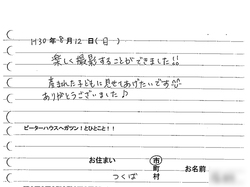 H30年8月12日(日)
楽しく撮影することができました!!
産まれた子どもに見せてあげたいです☺
ありがとうございました♪
ピーターハウスへガツン!とひとこと!!
お住まい
市
町
村
つくば
お名前